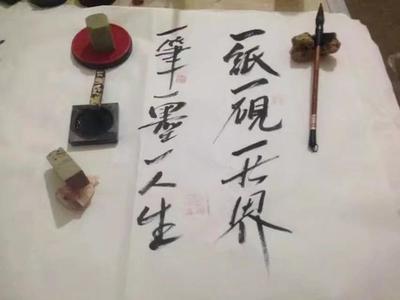 一紙一硯一世界
一筆一墨一人生